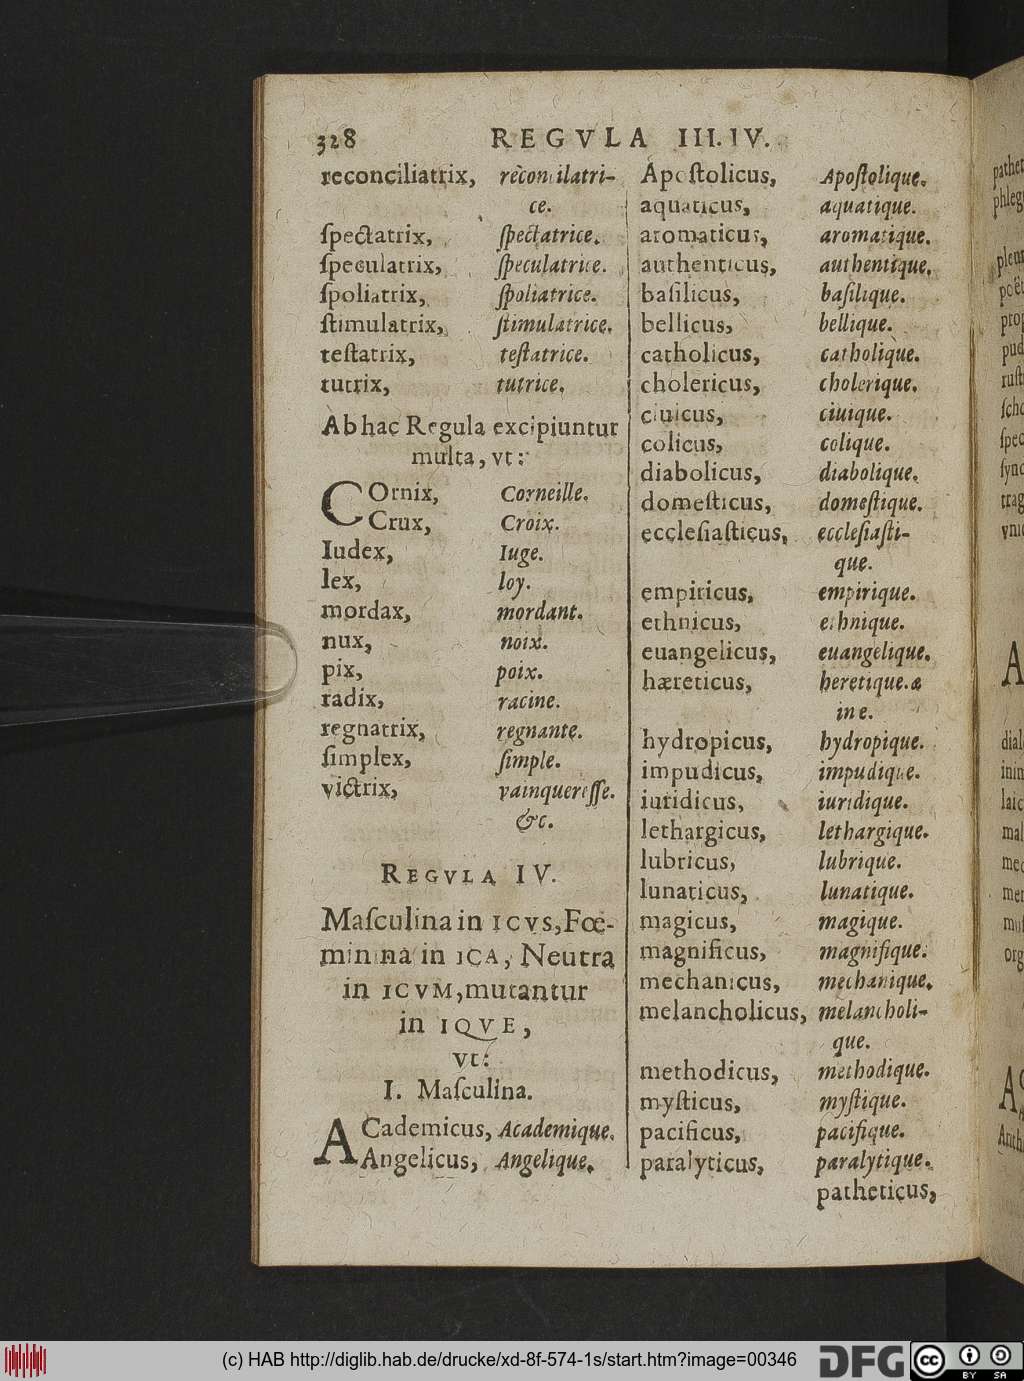 328 REGVLA III. IV.
reconciliatrix, reconciliatri-
ce.
ſpectatrix, ſpectatrice.
ſpeculatrix, ſpeculatrice.
ſpoliatrix, ſpoliatrice.
ſtimulatrix, ſtimulatrice.
teſtatrix, teſtatrice.
tutrix, tutrice.
Ab hac Regula excipiuntur
multa, vt:
COrnix, Corneille.
Crux, Croix.
Iudex, Iuge.
lex, loy.
mordax, mordant.
nux, noix.
pix, poix.
radix, racine.
regnatrix, regnante.
ſimplex, ſimple.
victrix, vainquereſſe.
&c.
REGVLA IV.
Maſculina in ICVS, Fœ-
minina in ICA, Neutra
in ICVM, mutantur
in IQVE,
vt:
I. Maſculina.
ACademicus, Academique.
Angelicus, Angelique.
Apoſtolicus, Apoſtolique.
aquaticus, aquatique.
aromaticus, aromatique.
authenticus, authentique.
baſilicus, baſilique.
bellicus, bellique.
catholicus, catholique.
cholericus, cholerique.
ciuicus, ciuique.
colicus, colique.
diabolicus, diabolique.
domeſticus, domeſtique.
eccleſiaſticus, eccleſiaſti-
que.
empiricus, empirique.
ethnicus, ethnique.
euangelicus, euangelique.
hæreticus, heretique. æ
ine.
hydropicus, hydropique.
impudicus, impudique.
iuridicus, iuridique.
lethargicus, lethargique.
lubricus, lubrique.
lunaticus, lunatique.
magicus, magique.
magnificus, magnifique.
mechanicus, mechanique.
melancholicus, melancholi-
que.
methodicus, methodique.
myſticus, myſtique.
pacificus, pacifique.
paralyticus, paralytique.
patheticus,
(c) HAB http://diglib.hab.de/drucke/xd-8f-574-1s/start.htm?image=00346
DFG
CC BY SA